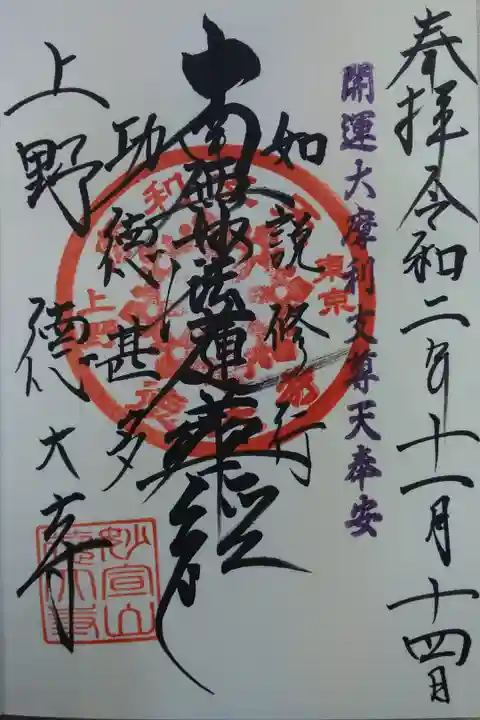 奉拝 令和二年十一月十四日
開運大摩利支尊天奉安
如説修行
南無妙法蓮華経
功徳甚多
上野 徳大寺
東京
妙宣山
徳大寺